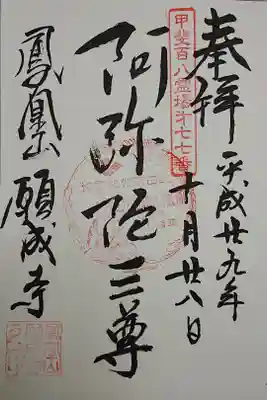 奉拝
平成廿九年
十月廿八日
甲斐百八霊場才七七番
阿弥陀三尊
鳳凰山 願成寺